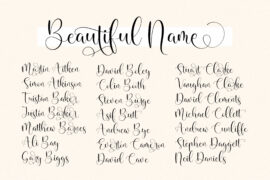 Beautiful Name
Martin Aitken
Simon Atkinson
Tristan Baker
Justin Barker
Matthew Barnes
Ali Bay
Gary Biggs
David Bixby
Colin Booth
Steven Burge
Asil Butt
Andrew Bye
Everton Cameron
David Cave
Stuart Clarke
Vaughan Clarke
David Clements
Michael Collett
Andrew Cunliffe
Stephen Daggett
Neil Daniels